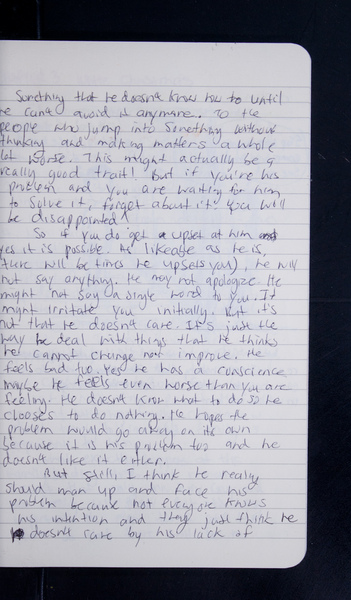 Something that he doesnt know how to until
he cant avoid it anymore. To the
people who jump into something without
thinking and making matters a whole
lot worse. This might actually be a
really good trait! But if you're his
problem and you are waiting for him
to solve it, forget about it! You will
be disappointed!
So if you do get upset at him and
yes it is possible. As likeable as he is,
there will be times he upsets you), he will
not say anything. He may not apologize. He
might not say a single word to you. It
might irritate you initially. But it's
not that he doesn't care. It's just the
way he deal with things that he thinks
he cannot change nor improve. He
feels bad too. Yes he has a conscience
maybe he feels even worse than you are
feeling. He doesn't know what to do so he
chooses to do nothing. He hopes the
problem would go away on its own
because it is his problem too and he
doesn't like it either.
But still, I think he really
should man up and face his
problem because not everyone knows
his intention and they just think he
doesn't care by his lack of